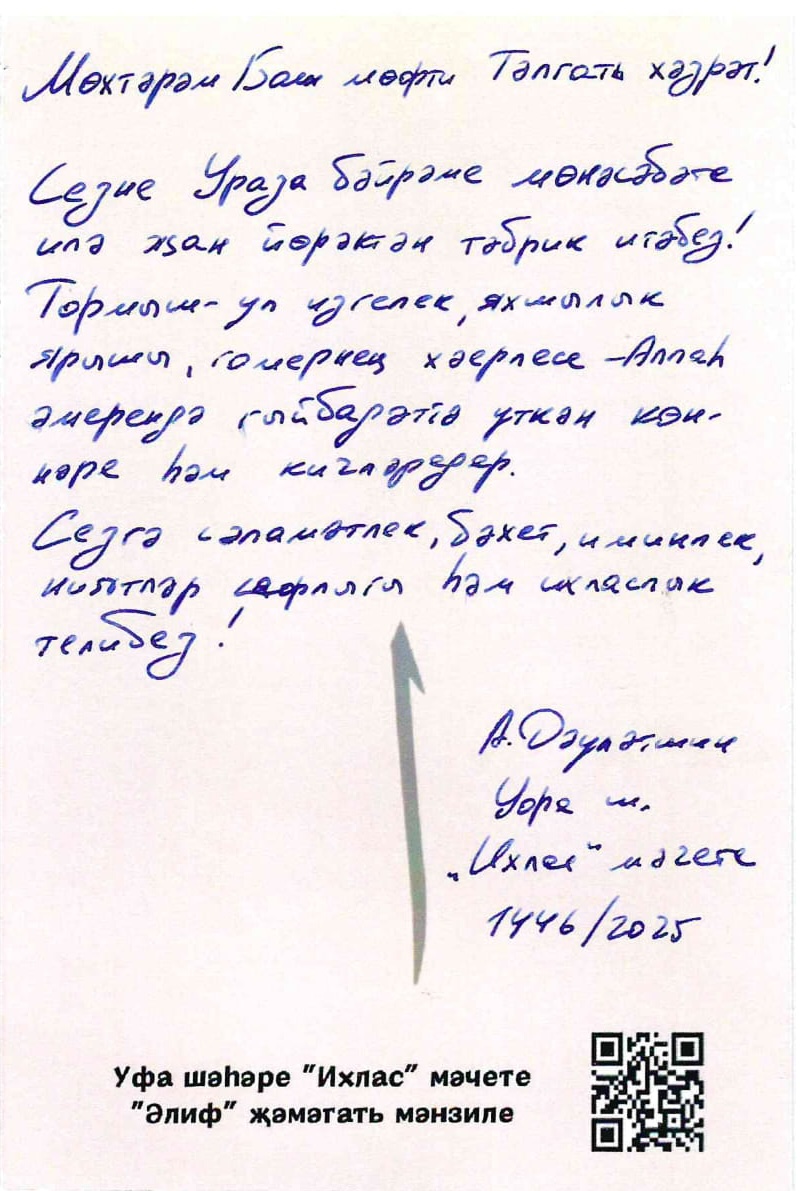 Мөхтәрәм Баш мөфти Тәлгать хәзрәт!
Сезне Ураза бәйрәме мөнәсәбәте
илә җан йөрәктән тәбрик итәбез!
Тормыш - ул изгелек, яхшылык
ярышы, гомернең хәерлесе - Аллаһ
әмерендә гыйбадәттә үткән көн-
нәре һәм кичләредер.
Сезгә сәламәтлек, бәхет, иминлек,
ниятләр сафлыгы һәм ихласлык
телибез!
А. Дәүләтшин
Уфа ш.
„Ихлас" мәчете
1446/2025
Уфа шәһәре "Ихлас" мәчете
"Әлиф" җәмәгать мәнзиле